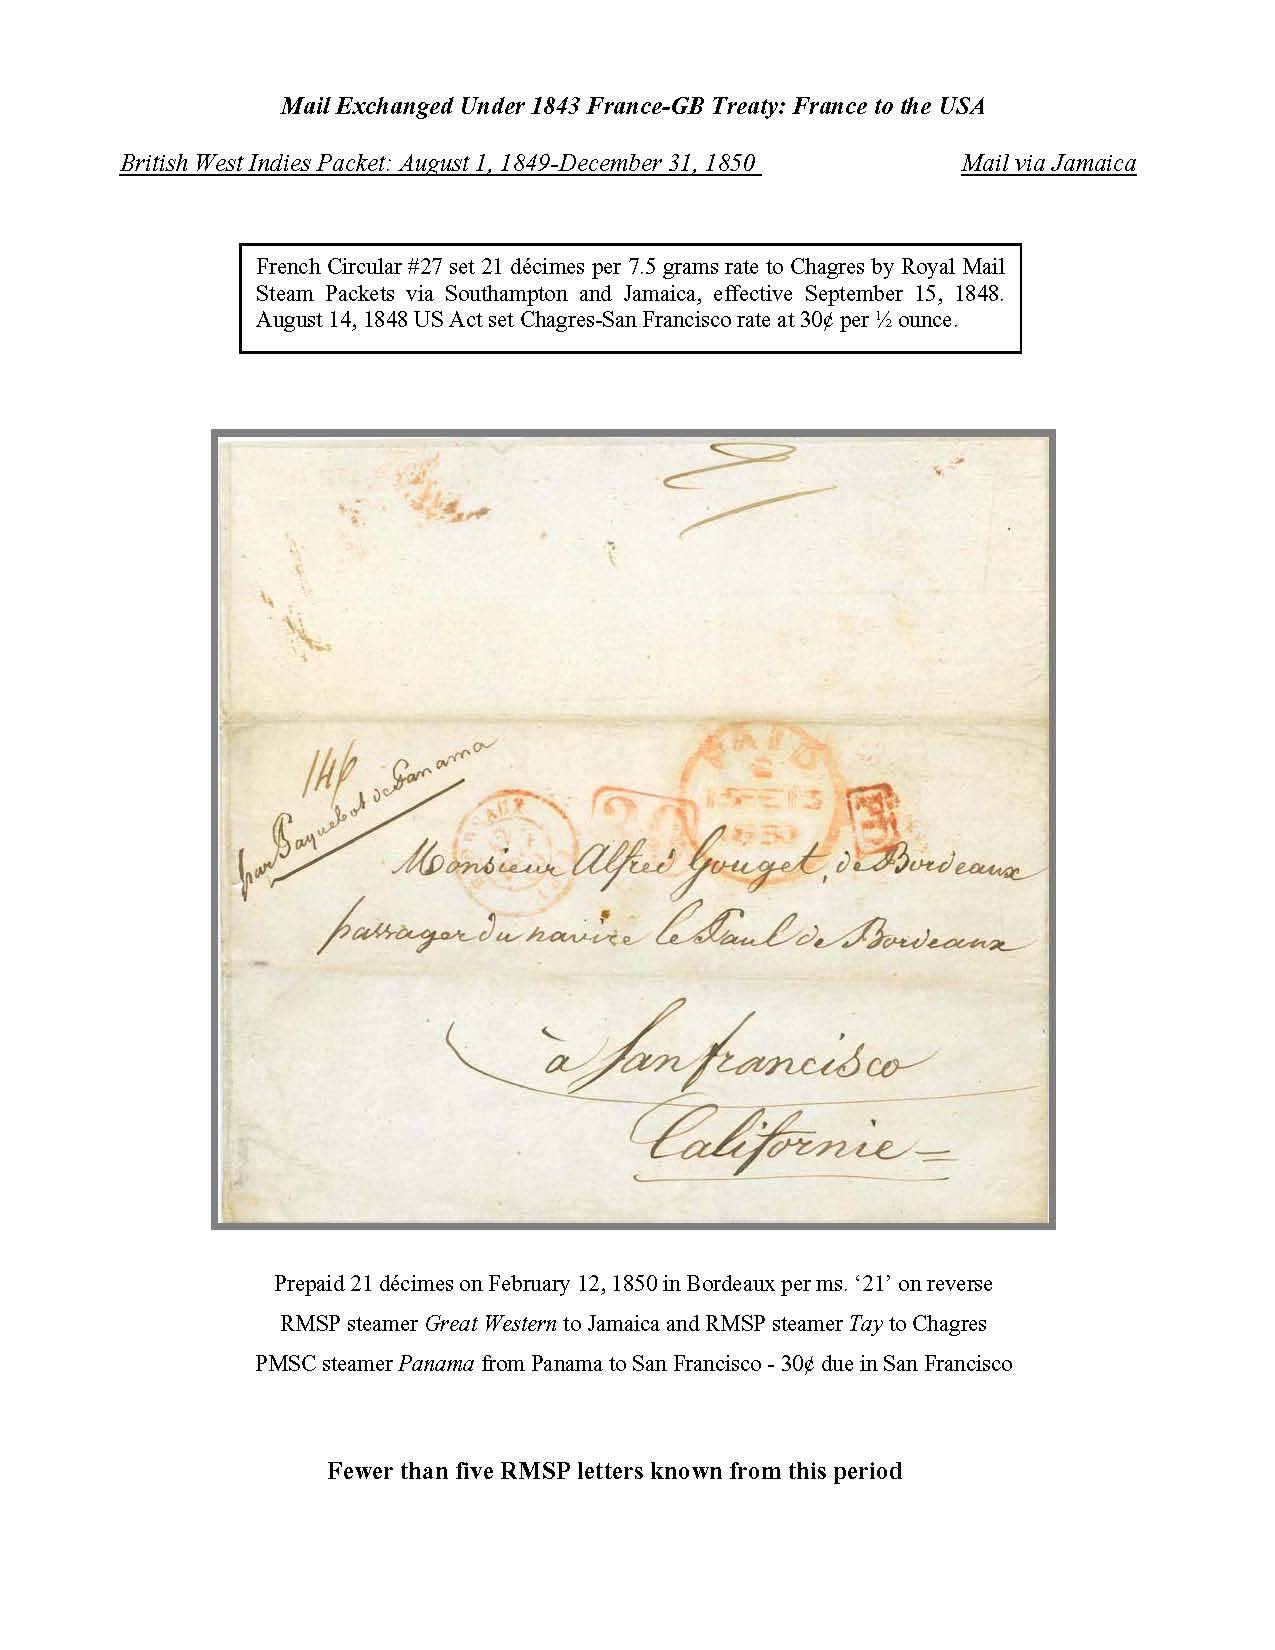 Mail Exchanged Under 1843 France-GB Treaty: France to the USA
British West Indies Packet: August 1, 1849-December 31, 1850 Mail via Jamaica
French Circular #27 set 21 décimes per 7.5 grams rate to Chagres by Royal Mail
Steam Packets via Southampton and Jamaica, effective September 15, 1848.
August 14, 1848 US Act set Chagres-San Francisco rate at 30¢ per ½ ounce.
146
par Paquebot de Panama
PAID
30
Monsieur Alfred Gouget, de Bordeaux
passager du navire le Paul de Bordeaux
à San francisco
Californie
Prepaid 21 décimes on February 12, 1850 in Bordeaux per ms. ‘21’ on reverse
RMSP steamer Great Western to Jamaica and RMSP steamer Tay to Chagres
PMSC steamer Panama from Panama to San Francisco - 30¢ due in San Francisco
Fewer than five RMSP letters known from this period